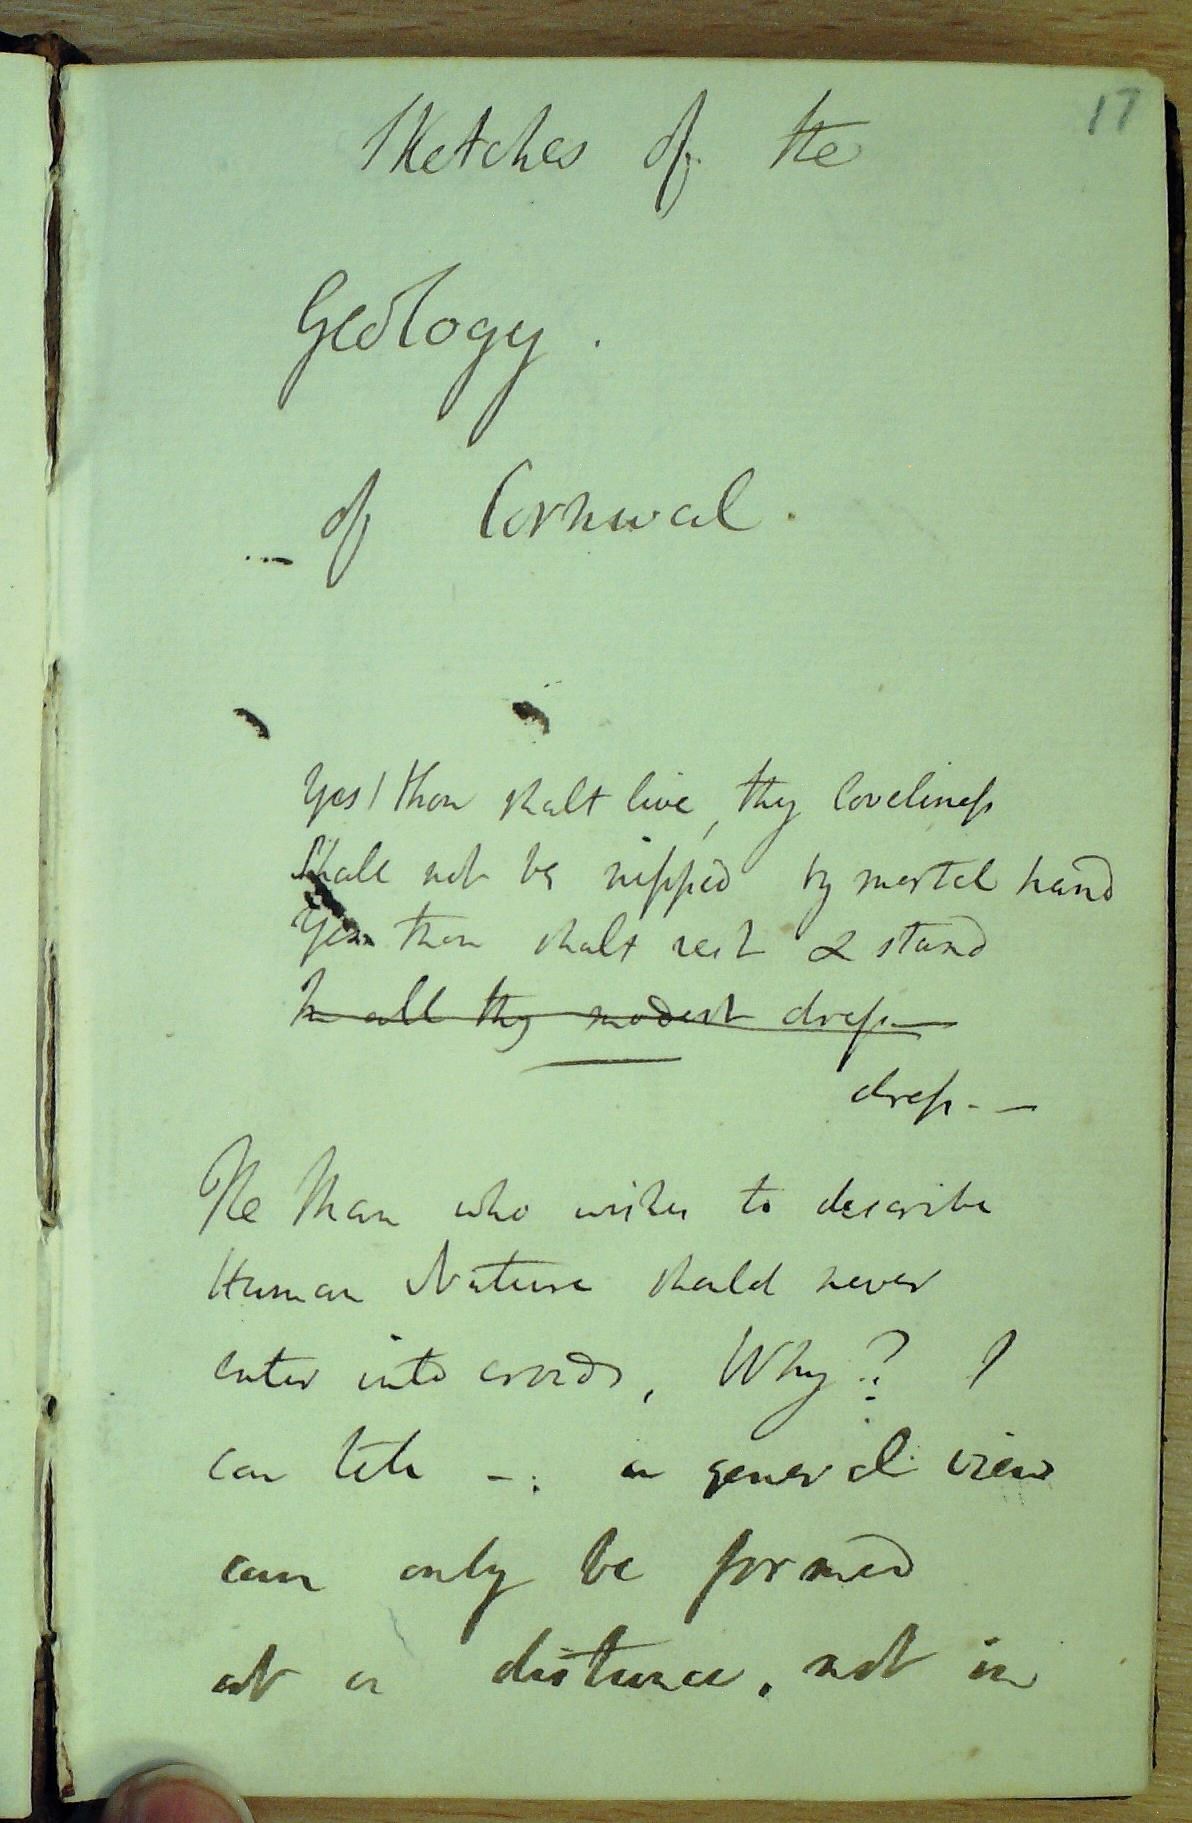 17
Sketches of the
Geology.
of Cornwal.
Yes! thou shalt live, thy loveliness
Shall not be nipped by mortal hand
Yes thou shalt rest & stand
In all thy modest dress
dress. —
The Man who wishes to describe
Human Nature should never
enter into crowds, Why? I
can tell —: a general view
can only be formed
at a distance, not in